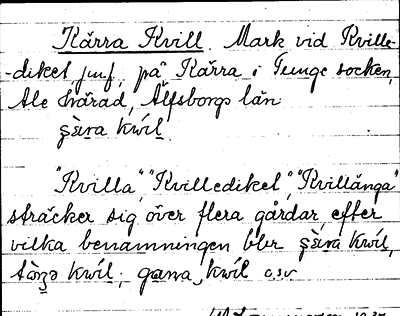 Kärra Kvill. Mark vid Kville-
-diket jmf. på Kärra i Tunge socken,
Ale härad, Älfsborgs län
s̢ä̀ra kwíl.
"Kvilla", "Kvillediket", "Kvillänga"
sträcker sig över flera gårdar, efter
vilka benämningen blir s̢ä̀ra kwíl,
kwíl; kwíl o.s.v